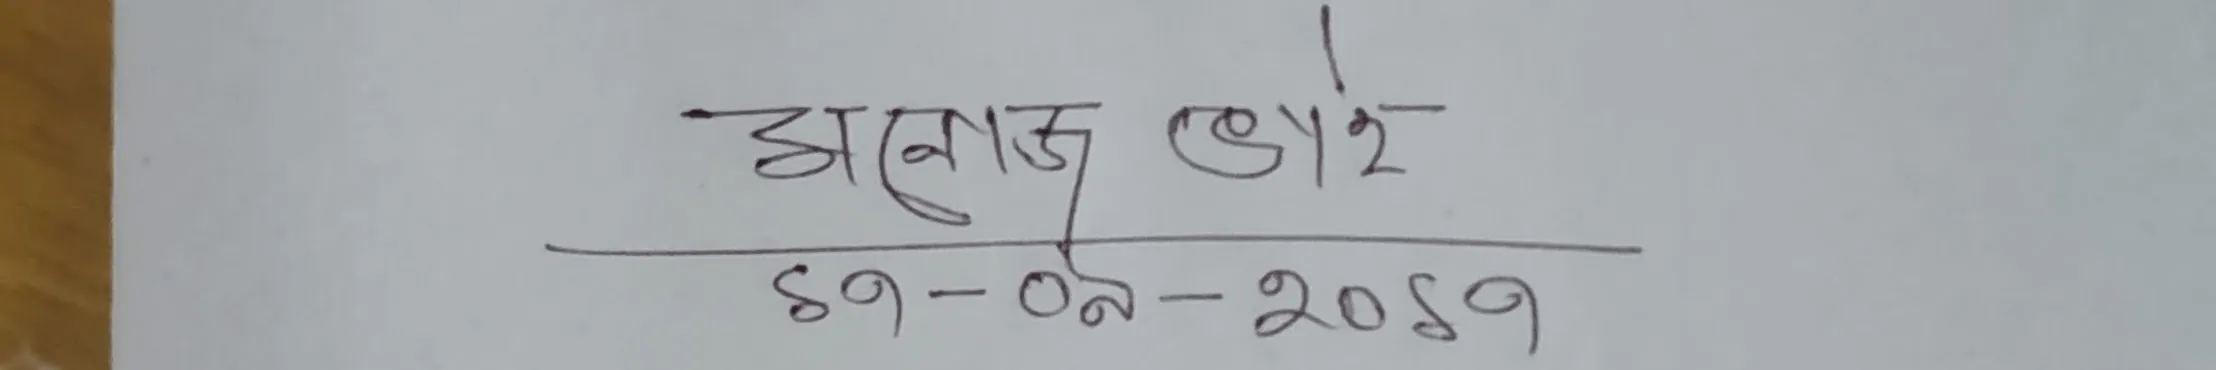 মনোজ ভাই
১৭-০৯-২০১৭